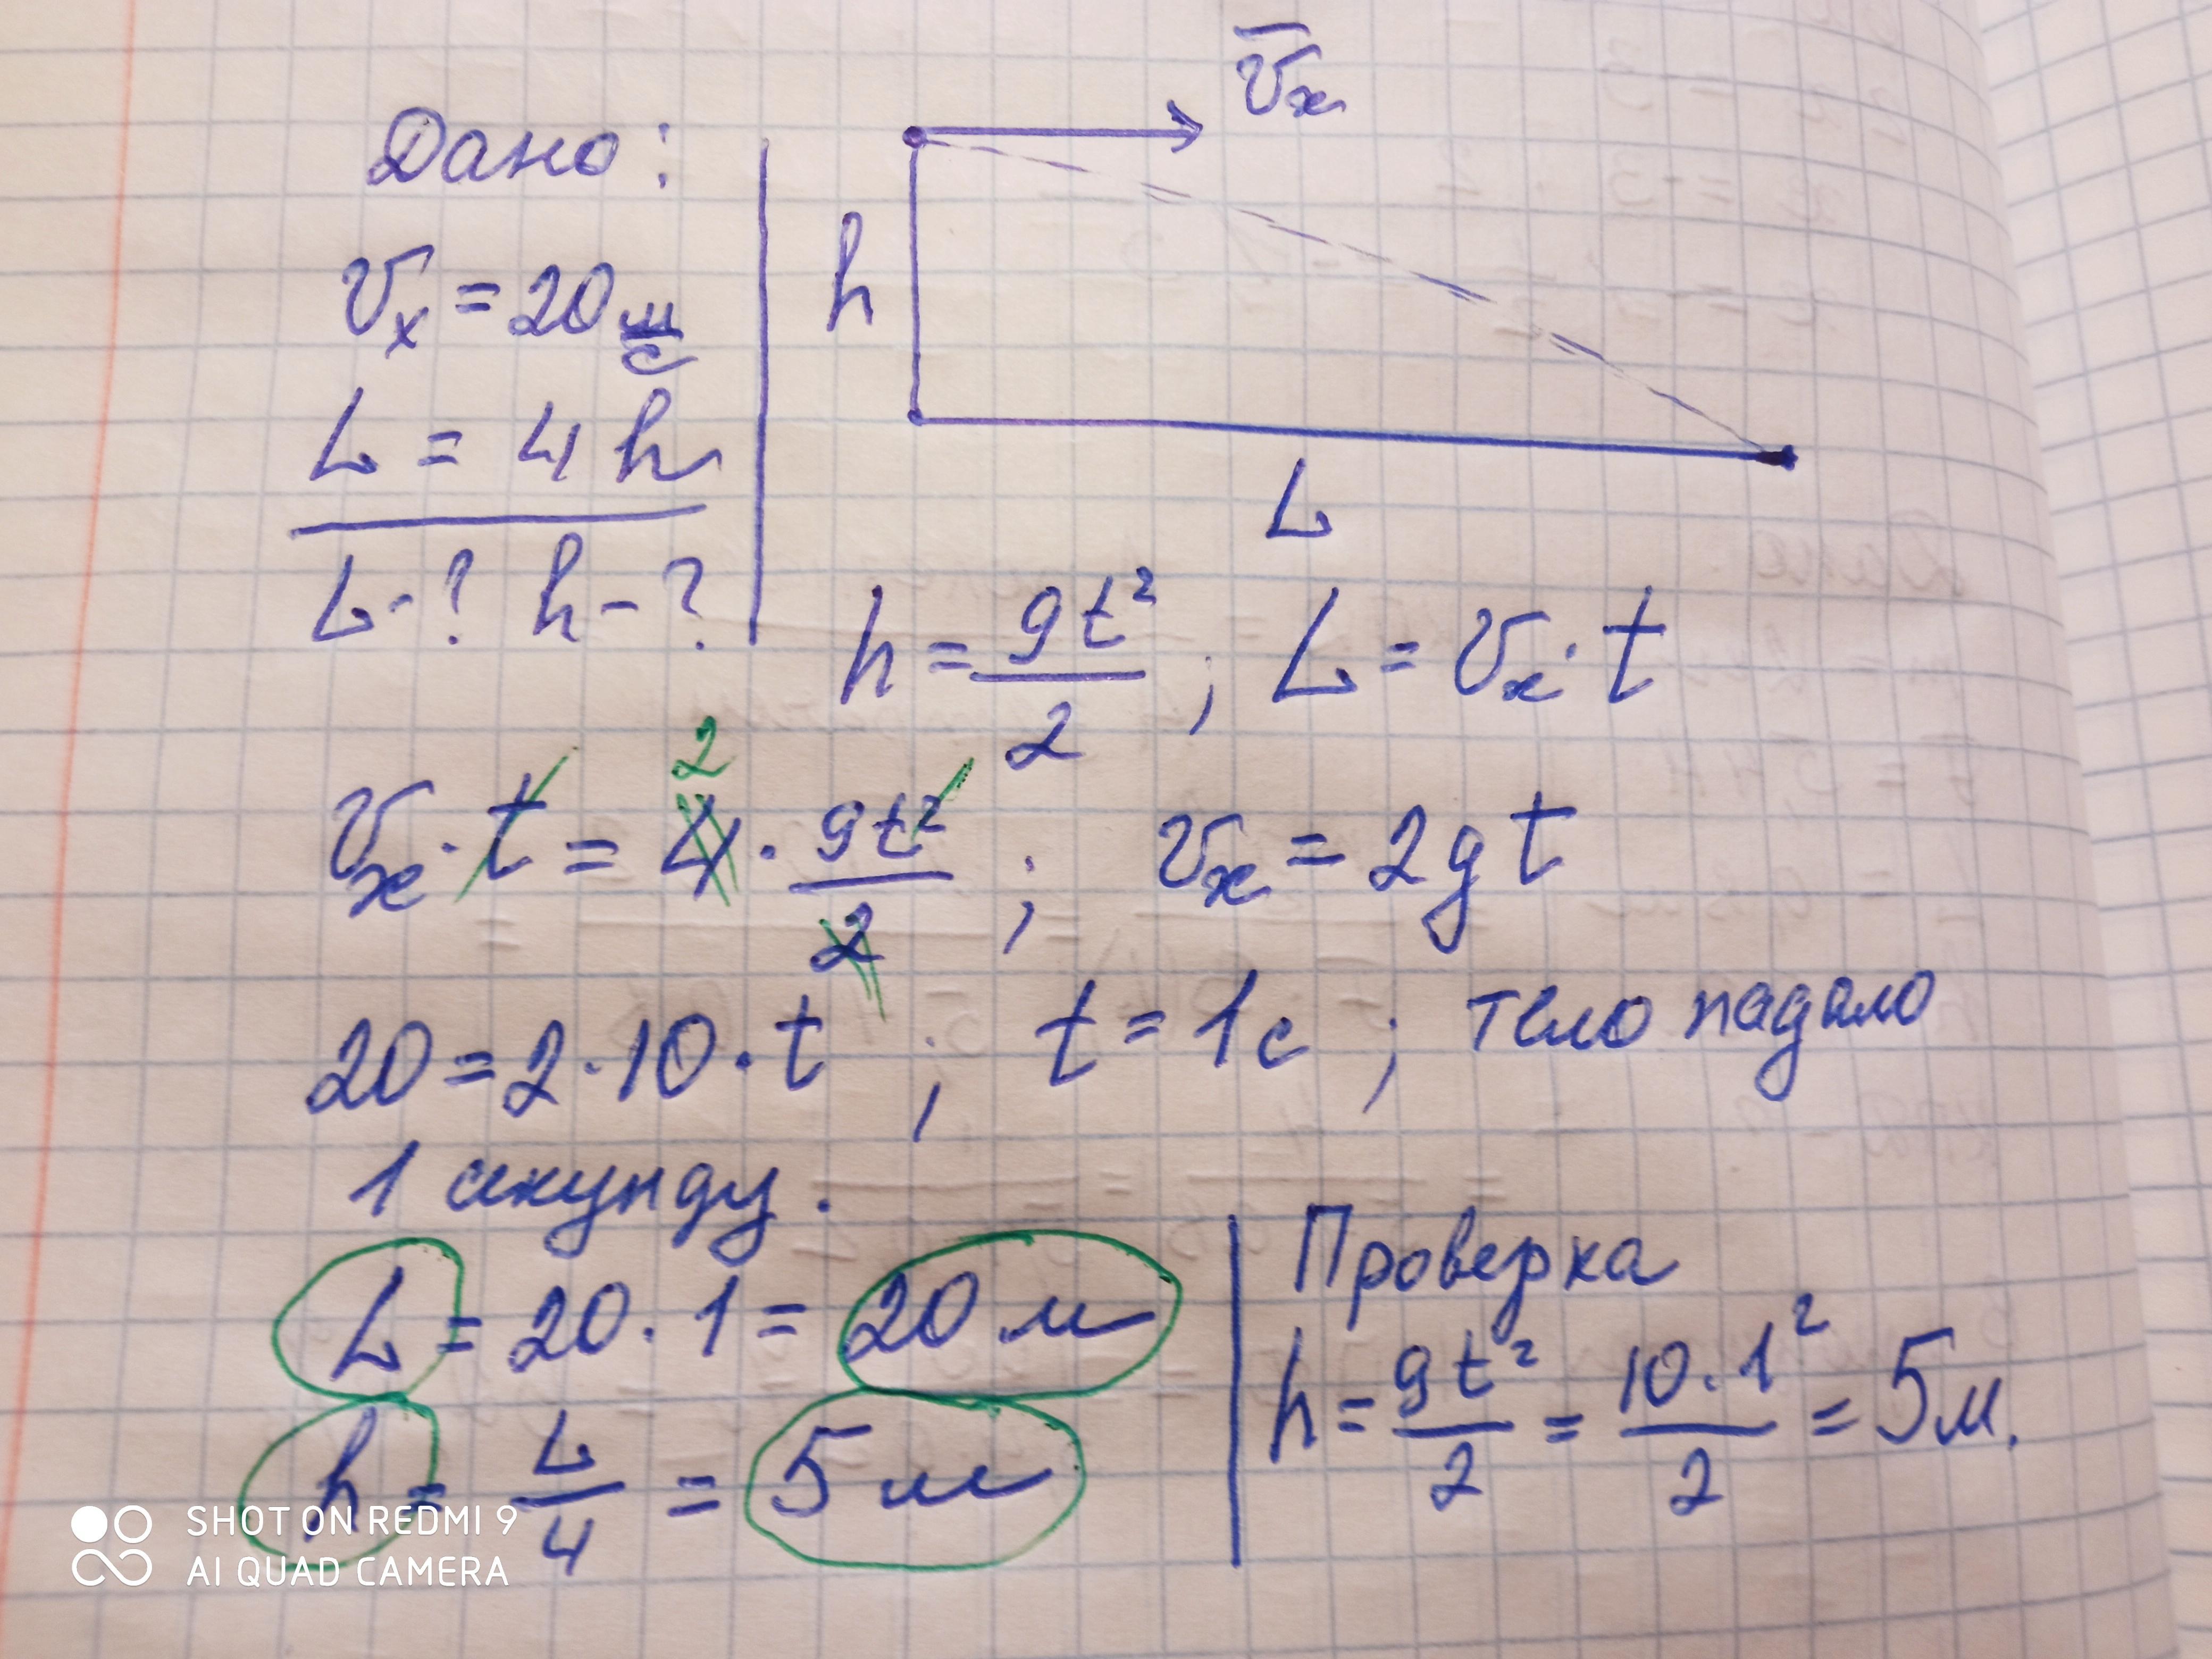 v̄ₓ
Дано:
vₓ = 20 м/с
L = 4h
L-? h-?
h
L
h = gt²/2 ; L = vₓ·t
2
vₓ·t = 4·gt²/2 ; vₓ = 2gt
20 = 2·10·t ; t = 1с ; тело падало
1 секунду.
L = 20·1 = 20 м
h = L/4 = 5 м
Проверка
h = gt²/2 = 10·1²/2 = 5м.
SHOT ON REDMI 9
AI QUAD CAMERA